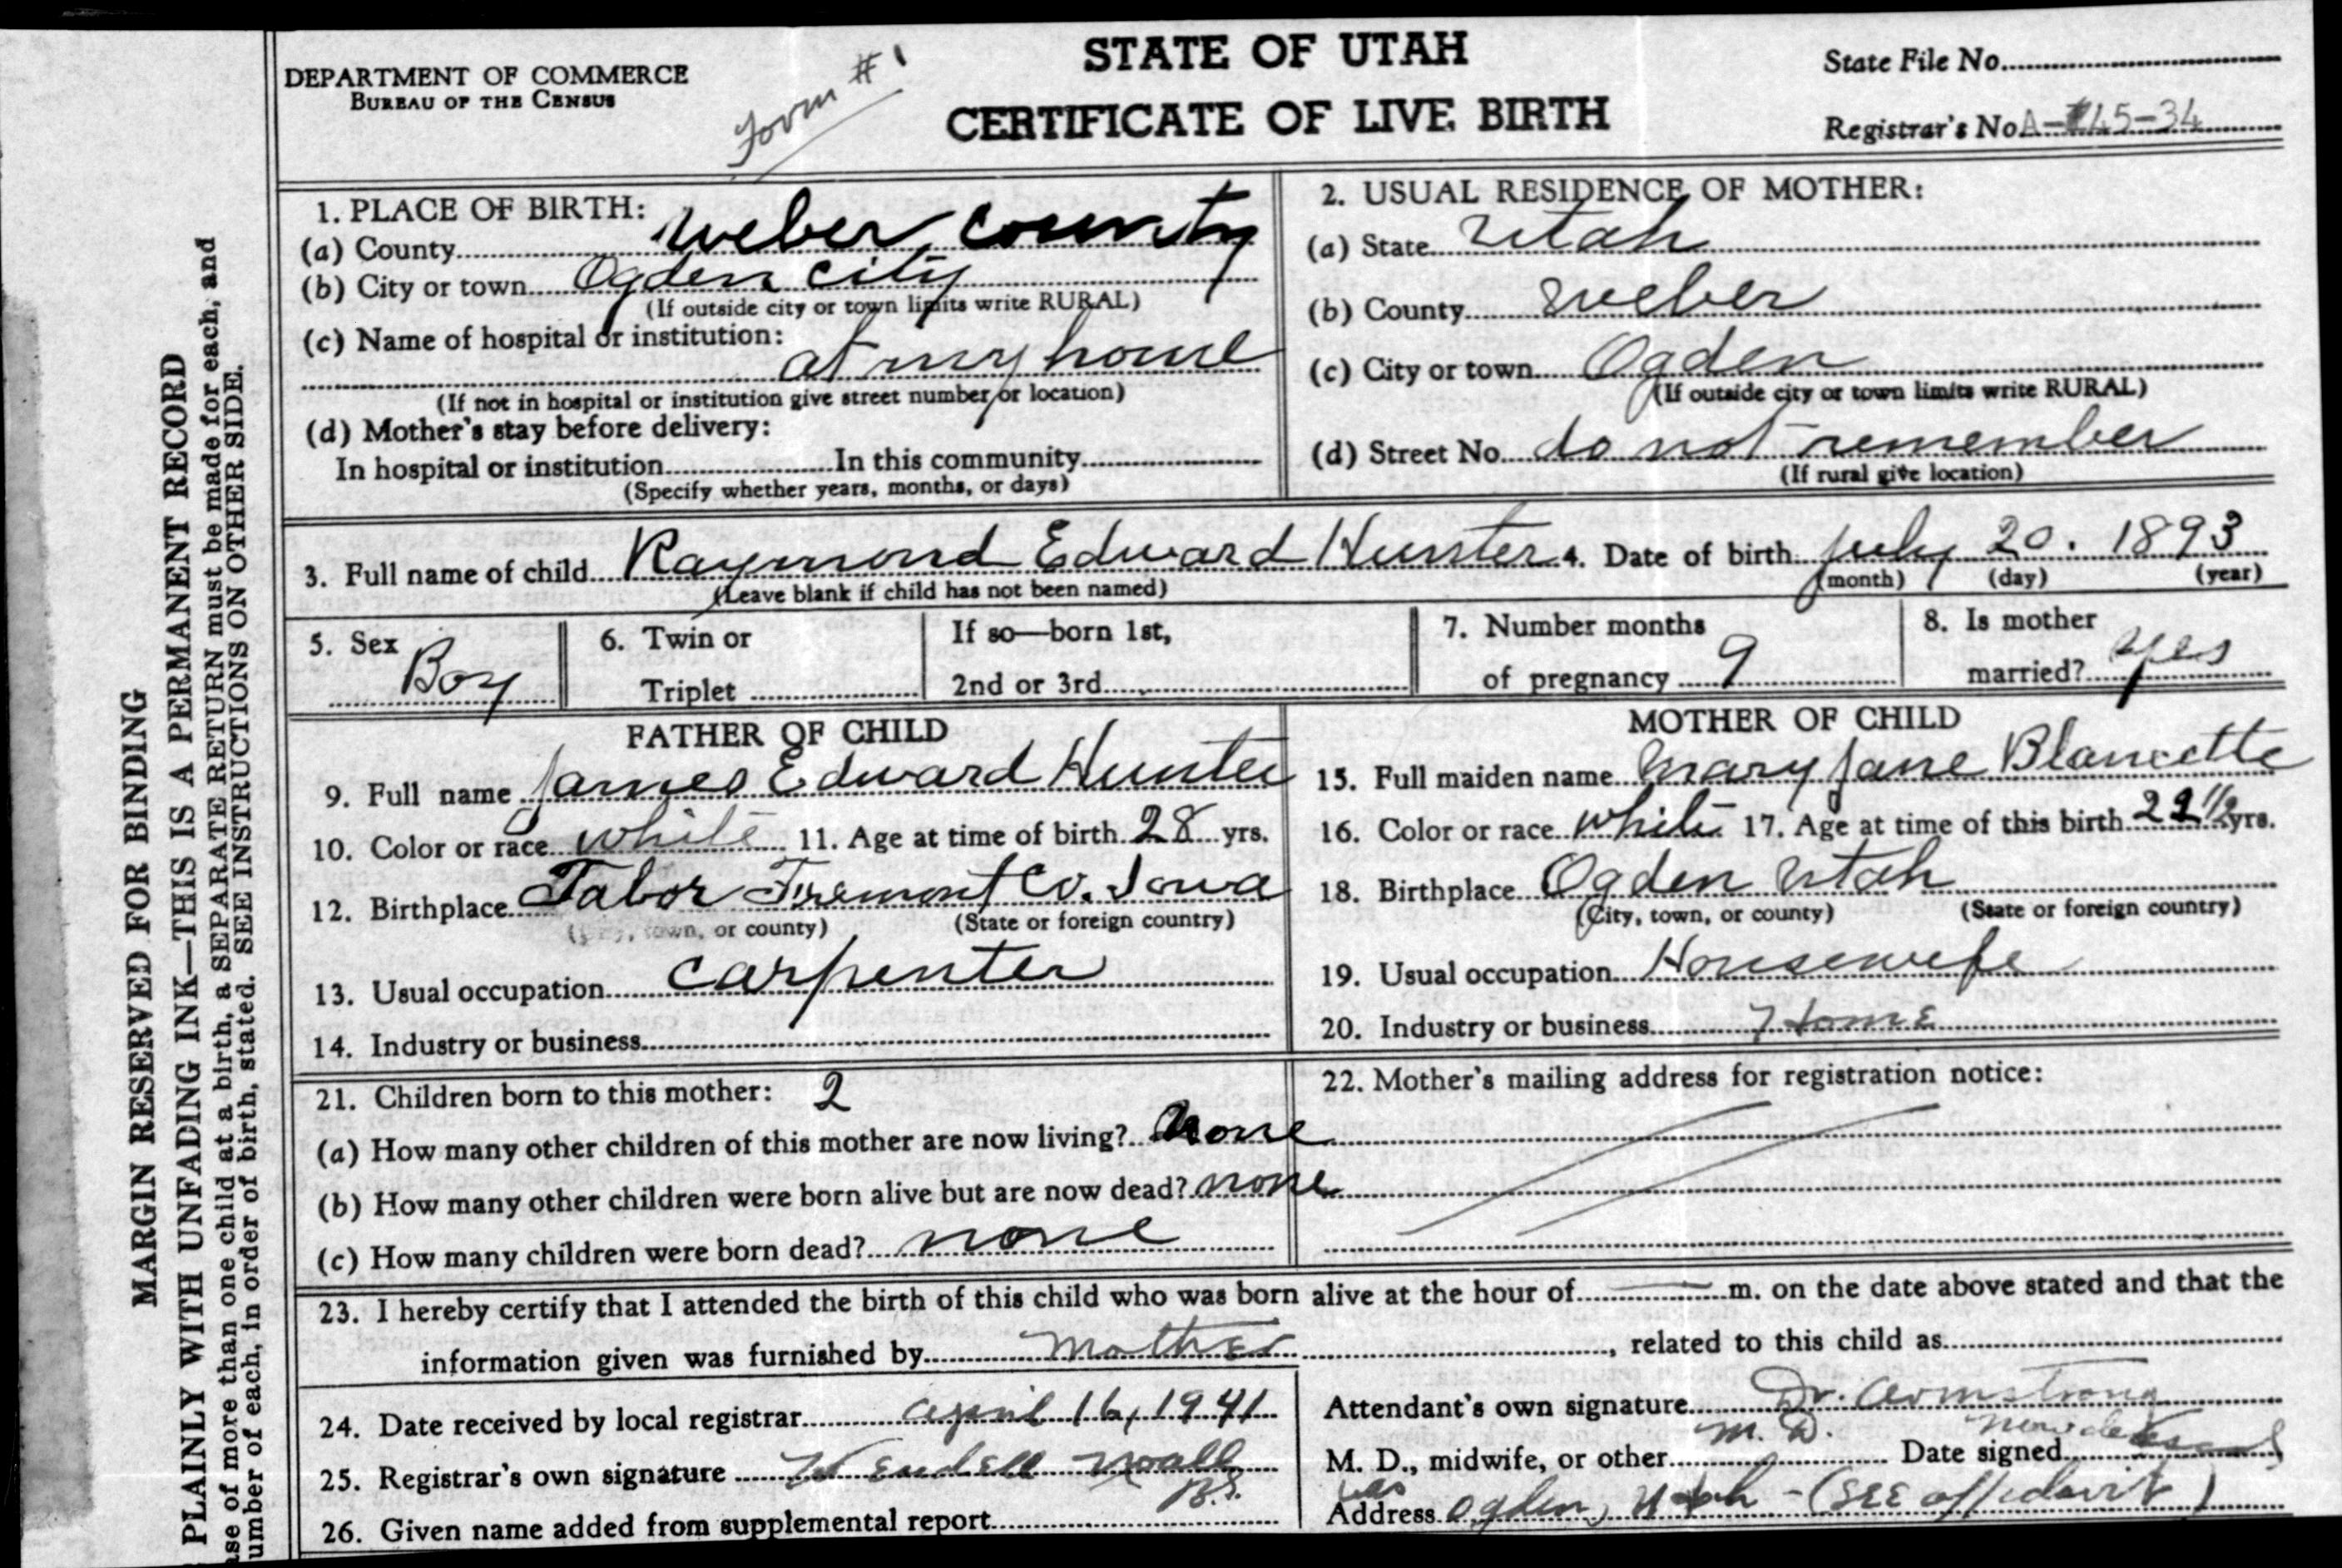 DEPARTMENT OF COMMERCE
BUREAU OF THE CENSUS
Form #1
STATE OF UTAH
CERTIFICATE OF LIVE BIRTH
State File No.
Registrar's No. A-#45-34
MARGIN RESERVED FOR BINDING
PLAINLY WITH UNFADING INK—THIS IS A PERMANENT RECORD
ase of more than one child at a birth, a SEPARATE RETURN must be made for each, and
umber of each, in order of birth, stated. SEE INSTRUCTIONS ON OTHER SIDE.
1. PLACE OF BIRTH:
(a) County Weber, County
(b) City or town Ogden City
(If outside city or town limits write RURAL)
(c) Name of hospital or institution:
at my home
(If not in hospital or institution give street number or location)
(d) Mother's stay before delivery:
In hospital or institution In this community
(Specify whether years, months, or days)
2. USUAL RESIDENCE OF MOTHER:
(a) State Utah
(b) County Weber
(c) City or town Ogden
(If outside city or town limits write RURAL)
(d) Street No. do not remember
(If rural give location)
3. Full name of child Raymond Edward Hunter 4. Date of birth July 20. 1893
(Leave blank if child has not been named) (month) (day) (year)
5. Sex Boy
6. Twin or
Triplet
If so—born 1st,
2nd or 3rd
7. Number months
of pregnancy 9
8. Is mother
married? yes
FATHER OF CHILD
9. Full name James Edward Hunter
10. Color or race white 11. Age at time of birth 28 yrs.
12. Birthplace Tabor Fremont Co. Iowa
(City, town, or county) (State or foreign country)
13. Usual occupation carpenter
14. Industry or business
MOTHER OF CHILD
15. Full maiden name Mary Jane Blancette
16. Color or race white 17. Age at time of this birth 21 1/2 yrs.
18. Birthplace Ogden Utah
(City, town, or county) (State or foreign country)
19. Usual occupation Housewife
20. Industry or business Home
21. Children born to this mother: 2
(a) How many other children of this mother are now living? none
(b) How many other children were born alive but are now dead? none
(c) How many children were born dead? none
22. Mother's mailing address for registration notice:
23. I hereby certify that I attended the birth of this child who was born alive at the hour of m. on the date above stated and that the
information given was furnished by Mother, related to this child as
24. Date received by local registrar April 16, 1941
25. Registrar's own signature Wendell Noall
B.S.
26. Given name added from supplemental report
Attendant's own signature Dr. Armstrong
M. D., midwife, or other M.D. Date signed now deceased
was
Address Ogden, Utah - (SEE affidavit)